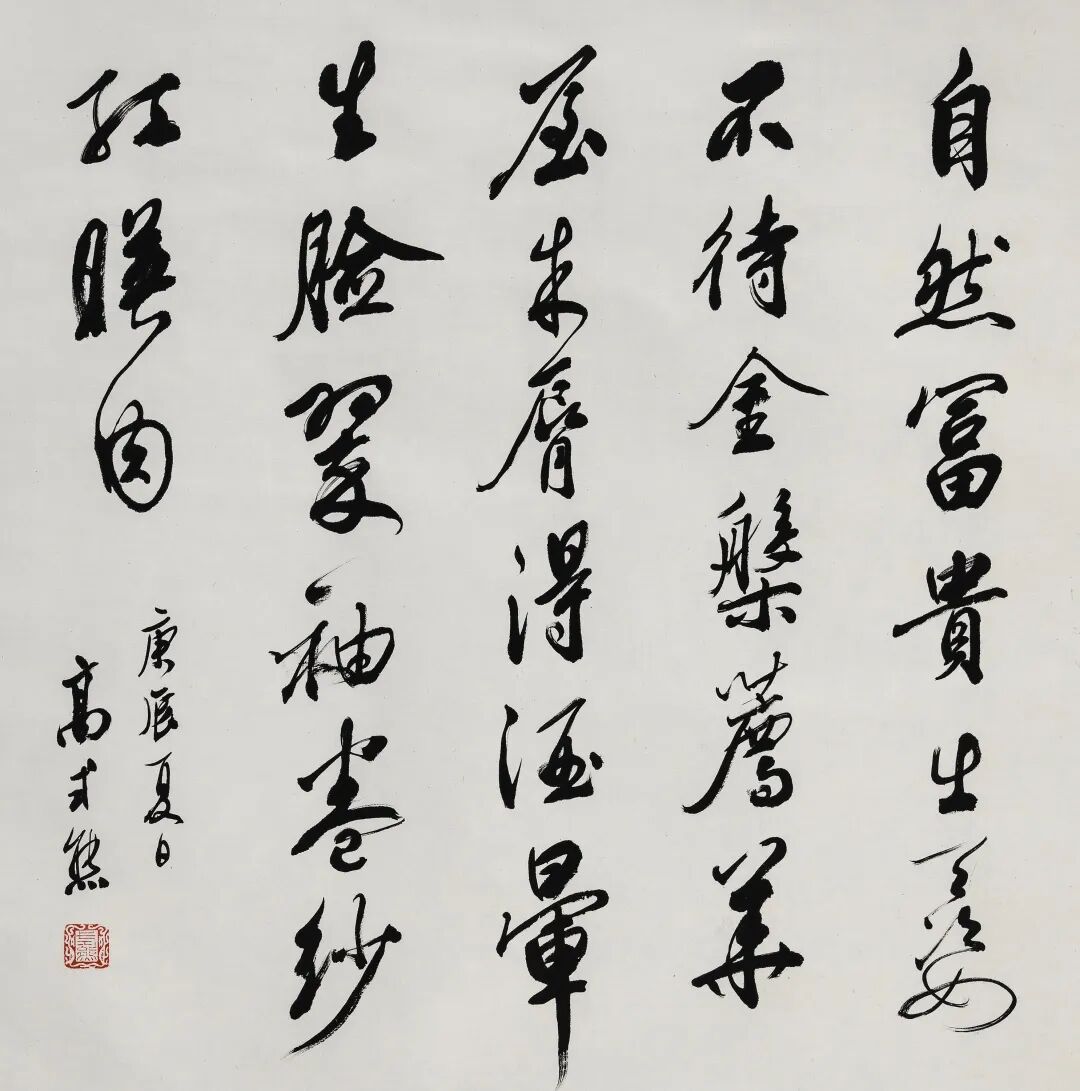 自然富貴出天姿
不待金槃薦華
屋朱脣得酒暈
生臉翠袖卷紗
紅暎肉
庚辰夏日
高式熊